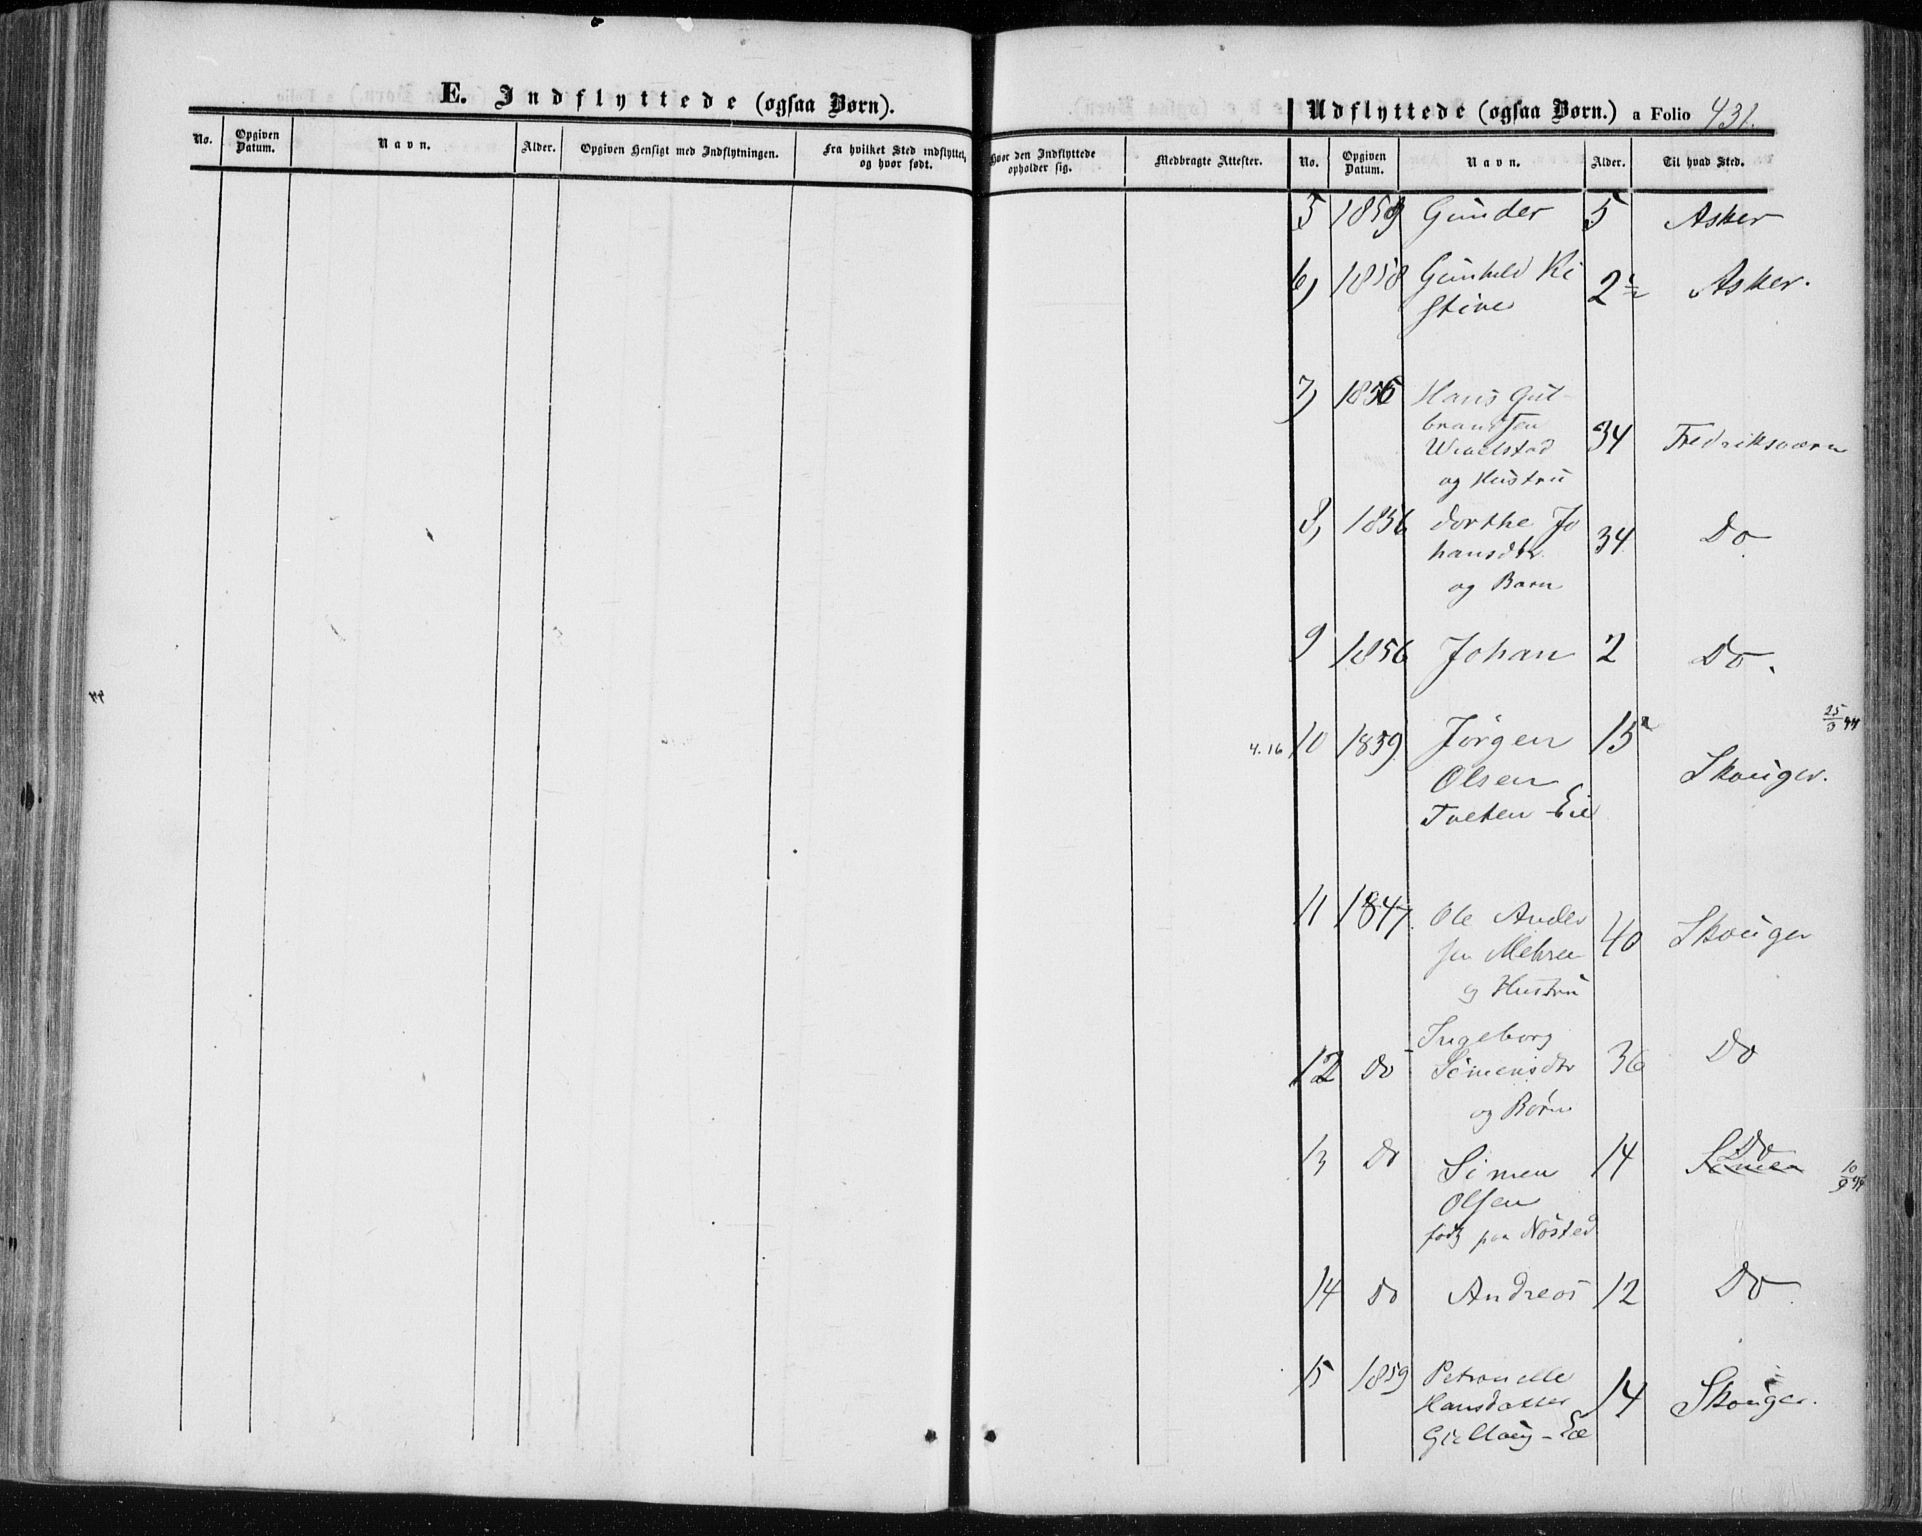 E. Indflyttede (ogsaa Børn).
No.
Opgiven Datum.
Navn.
Alder.
Opgiven Hensigt med Indflytningen.
Fra hvilket Sted indflyttet, og hvor født.
Hvor den Indflyttede opholder sig.
Medbragte Attester.
Udflyttede (ogsaa Børn.) a Folio 431.
No.
Opgiven Datum.
Navn.
Alder.
Til hvad Sted.
5 1859 Gunder 5 Asker
6) 1858 Gunhild Ki
stine 2½ Asker.
7) 1856 Hans Gul
brandsen
og Hustru 34 Fredriksværn
8) 1856 dorthe Jo
hansdtr 34 Do
og Barn
9 1856 Johan 2 Do.
4.16 10 1859 Jørgen 15 25/3 44
Olsen Skouger.
Tveten Eie
11 1847 Ole Ander
sen Mehree 40 Skouger
og Hustru
12 Do Ingeborg
Simensdtr 36 Do
og Børn
13 Do Simen 14 Do Simen 10/9 44
Olsen
født paa Nøsted
14 Do Andreas 12 Do
15 1859 Petronelle
Hansdatter 14 Skouger.